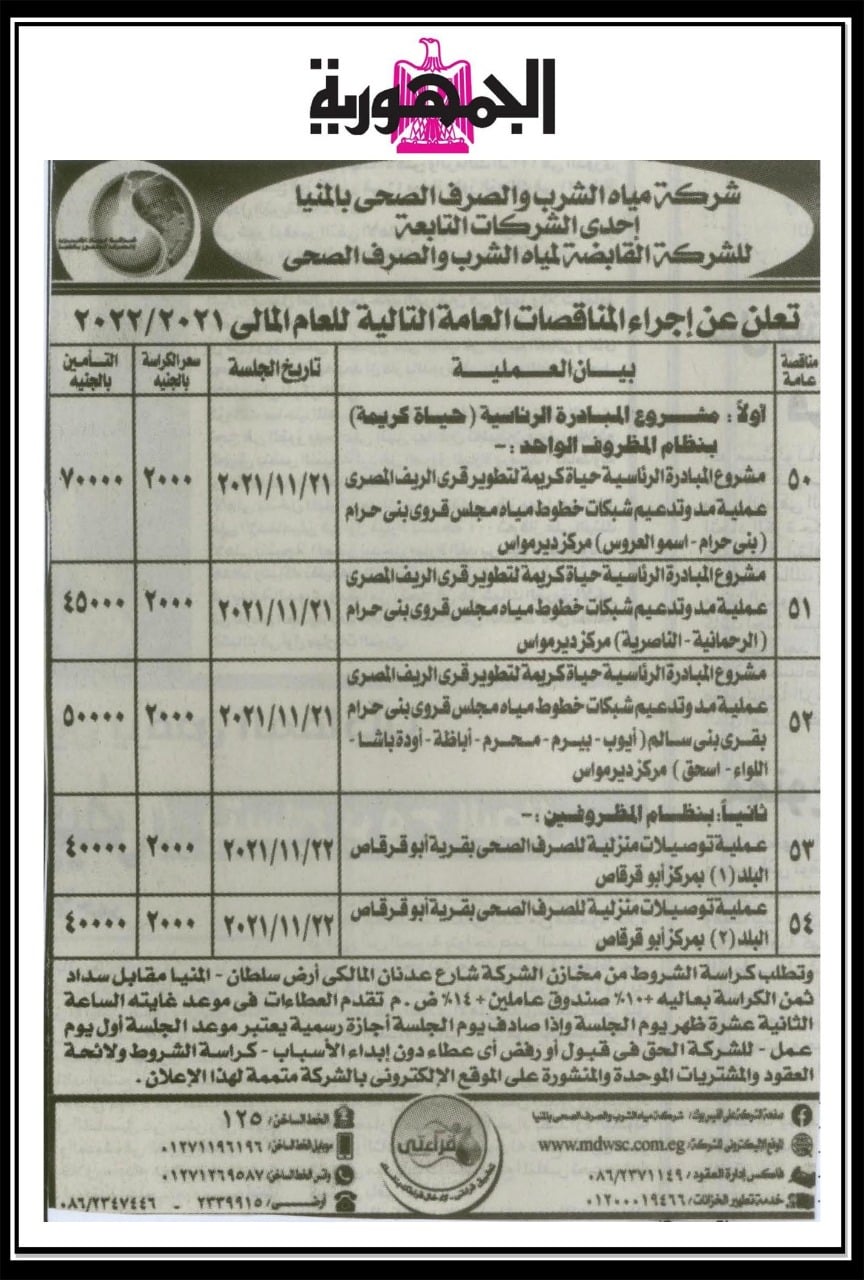 الجمهورية
شركة مياه الشرب والصرف الصحى بالمنيا
إحدى الشركات التابعة
للشركة القابضة لمياه الشرب والصرف الصحى
تعلن عن إجراء المناقصات العامة التالية للعام المالى ٢٠٢٢/٢٠٢١
مناقصة عامة
بيان العملية
تاريخ الجلسة
سعر الكراسة بالجنيه
التأمين بالجنيه
أولاً: مشروع المبادرة الرئاسية (حياة كريمة)
بنظام المظروف الواحد: -
٥٠
مشروع المبادرة الرئاسية حياة كريمة لتطوير قرى الريف المصرى
عملية مد وتدعيم شبكات خطوط مياه مجلس قروى بنى حرام
(بنى حرام - اسمو العروس) مركز ديرمواس
٢٠٢١/١١/٢١
٢٠٠٠
٧٠٠٠٠
٥١
مشروع المبادرة الرئاسية حياة كريمة لتطوير قرى الريف المصرى
عملية مد وتدعيم شبكات خطوط مياه مجلس قروى بنى حرام
(الرحمانية - الناصرية) مركز ديرمواس
٢٠٢١/١١/٢١
٢٠٠٠
٤٥٠٠٠
٥٢
مشروع المبادرة الرئاسية حياة كريمة لتطوير قرى الريف المصرى
عملية مد وتدعيم شبكات خطوط مياه مجلس قروى بنى حرام
بقرى بنى سالم (أيوب - بيرم - محرم - أباظة - أودة باشا -
اللواء - اسحق) مركز ديرمواس
٢٠٢١/١١/٢١
٢٠٠٠
٥٠٠٠٠
ثانياً: بنظام المظروفين: -
٥٣
عملية توصيلات منزلية للصرف الصحى بقرية أبو قرقاص
البلد (١) بمركز أبو قرقاص
٢٠٢١/١١/٢٢
٢٠٠٠
٤٠٠٠٠
٥٤
عملية توصيلات منزلية للصرف الصحى بقرية أبو قرقاص
البلد (٢) بمركز أبو قرقاص
٢٠٢١/١١/٢٢
٢٠٠٠
٤٠٠٠٠
وتطلب كراسة الشروط من مخازن الشركة شارع عدنان المالكى أرض سلطان - المنيا مقابل سداد
ثمن الكراسة بعاليه +١٠٪ صندوق عاملين + ١٤٪ ض . م تقدم العطاءات فى موعد غايته الساعة
الثانية عشرة ظهر يوم الجلسة وإذا صادف يوم الجلسة أجازة رسمية يعتبر موعد الجلسة أول يوم
عمل - للشركة الحق فى قبول أو رفض أى عطاء دون إبداء الأسباب - كراسة الشروط ولائحة
العقود والمشتريات الموحدة والمنشورة على الموقع الإلكترونى بالشركة متممة لهذا الإعلان .
صفحة الشركة على الفيس بوك: شركة مياه الشرب والصرف الصحى بالمنيا
الموقع الإليكترونى للشركة: www.mdwsc.com.eg
فاكس إدارة العقود / ٠٨٦/٢٣٧١١٤٩
خدمة تطهير الخزانات / ٠١٢٠٠٠١٩٤٦٦
قراءتى
الخط الساخن: ١٢٥
موبايل الخط الساخن: ٠١٢٧١١٩٦١٩٦
واتس الخط الساخن: ٠١٢٧١٢٦٩٥٨٧
أرضى: ٢٣٣٩٩١٥ - ٠٨٦/٢٣٤٧٤٤٦